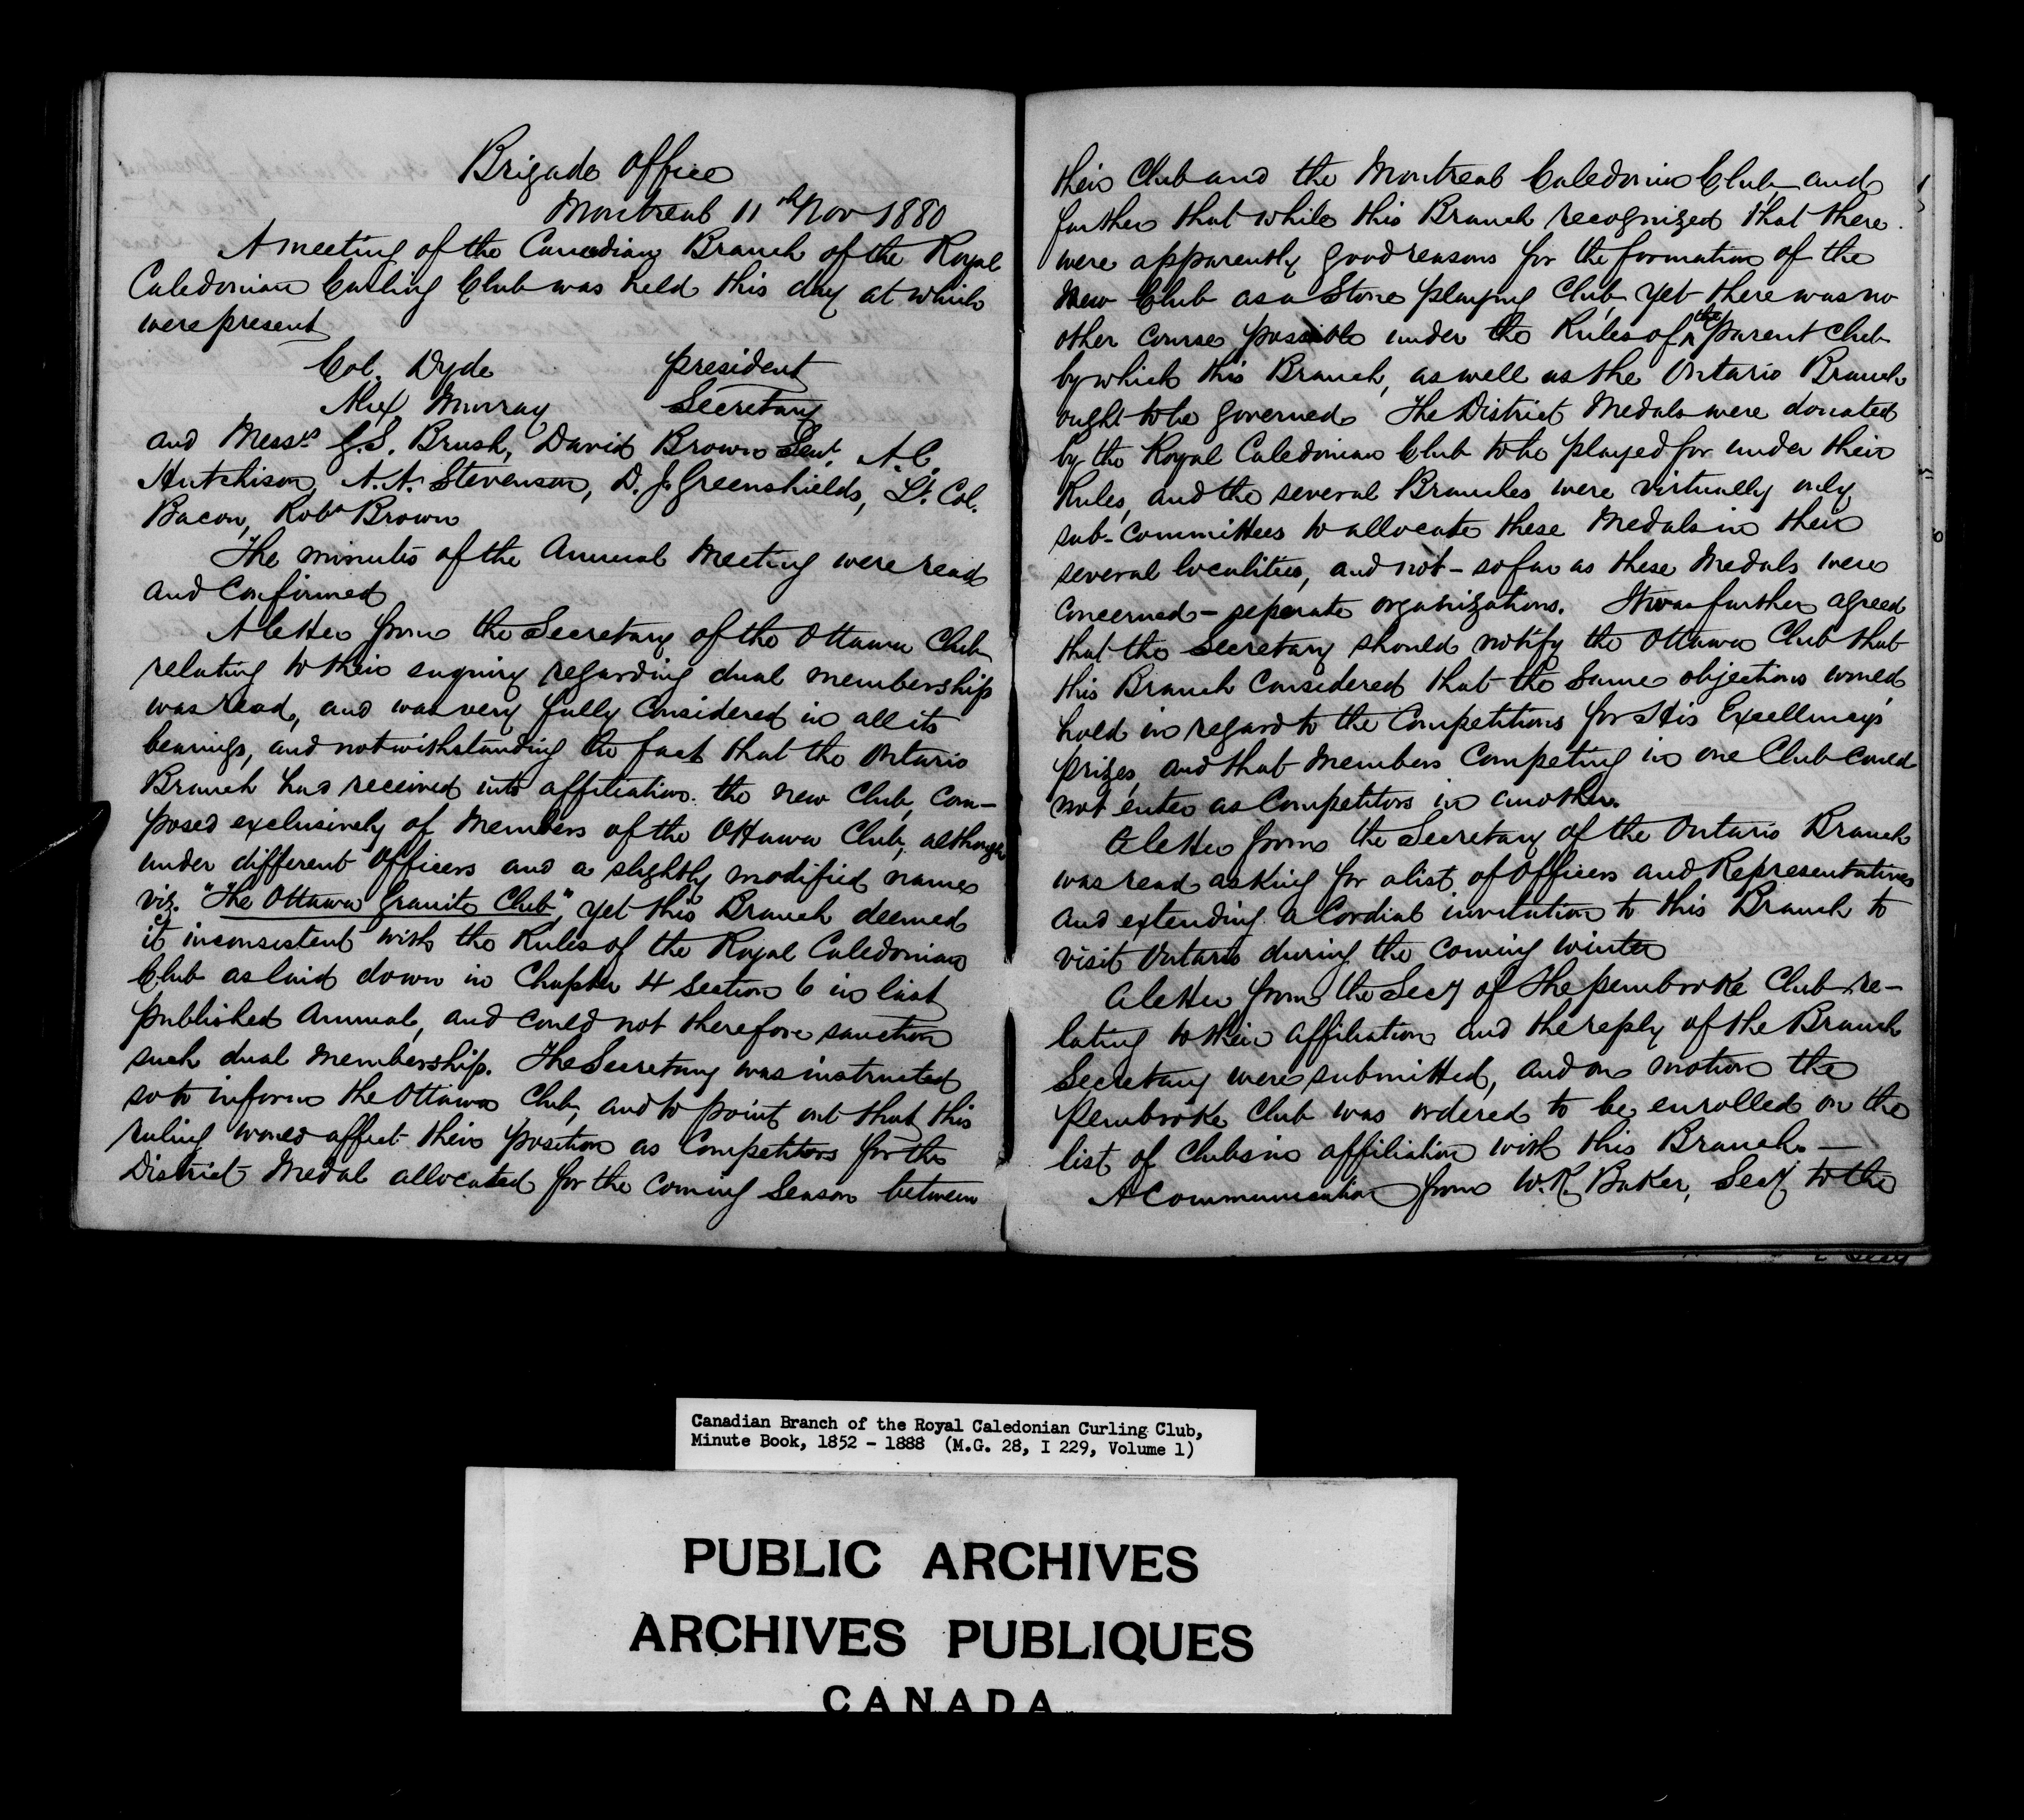 Brigade Office
Montreal 11th Nov 1880
A meeting of the Canadian Branch of the Royal
Caledonian Curling Club was held this day at which
were present
Col. Dyde president
Alex Murray Secretary
and Messrs G.S. Brush, David Brown Senr, A.C.
Hutchison, A.A. Stevenson, D.J. Greenshields, Lt. Col.
Bacon, Robt Brown
The minutes of the Annual Meeting were read
and Confirmed
A letter from the Secretary of the Ottawa Club
relating to their enquiry regarding dual membership
was read, and was very fully Considered in all its
bearings, and notwithstanding the fact that the Ontario
Branch had received into affiliation the new Club, com-
posed exclusively of Members of the Ottawa Club, although
under different Officers and a slightly modified name
viz. "The Ottawa Granite Club", yet this Branch deemed
it inconsistent with the Rules of the Royal Caledonian
Club as laid down in Chapter 4 Section 6 in last
published Annual, and could not therefore sanction
such dual Membership. The Secretary was instructed
so to inform the Ottawa Club, and to point out that this
ruling would affect their position as Competitors for the
District Medal allocated for the Coming Season between
their Club and the Montreal Caledonia Club and
further that while this Branch recognized that there
were apparently good reasons for the formation of the
new Club as a Stone playing Club, yet there was no
other course possible under the Rules of the parent Club
by which this Branch, as well as the Ontario Branch
ought to be governed. The District Medals were donated
by the Royal Caledonian Club to be played for under their
Rules, and the several Branches were virtually only
sub-Committees to allocate these Medals in their
several localities, and not - so far as these Medals were
concerned - seperate organizations. It was further agreed
that the Secretary should notify the Ottawa Club that
this Branch Considered that the Same objections would
hold in regard to the Competitions for His Excellency's
prizes, and that Members Competing in one Club could
not enter as Competitors in another.
A letter from the Secretary of the Ontario Branch
was read asking for a list of Officers and Representatives
and extending a Cordial invitation to this Branch to
visit Ontario during the coming winter
A letter from the Secy of the pembroke Club re-
lating to their affiliation and the reply of the Branch
Secretary were submitted, and on motion the
Pembroke Club was ordered to be enrolled on the
list of Clubs in affiliation with this Branch. —
A Communication from W.R. Baker, Secy to the
Canadian Branch of the Royal Caledonian Curling Club,
Minute Book, 1852 - 1888 (M.G. 28, I 229, Volume 1)
PUBLIC ARCHIVES
ARCHIVES PUBLIQUES
CANADA